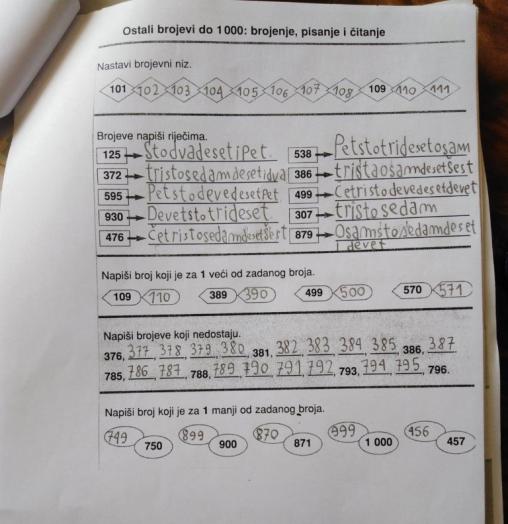 Ostali brojevi do 1 000: brojenje, pisanje i čitanje
Nastavi brojevni niz.
101 102 103 104 105 106 107 108 109 110 111
Brojeve napiši riječima.
125 StodvadesetiPet. 538 Petstotridesetosam
372 tristosedamdesetidva 386 tristaosamdesetšest
595 PetstodevedesetPet 499 četristodevedesetdevet
930 Devetstotrideset 307 tristosedam
476 četristosedamdesetšest 879 Osamstosedamdeset
devet
Napiši broj koji je za 1 veći od zadanog broja.
109 110 389 390 499 500 570 571
Napiši brojeve koji nedostaju.
376, 377, 378, 379, 380, 381, 382, 383, 384, 385, 386, 387
785, 786, 787, 788, 789, 790, 791, 792, 793, 794, 795, 796.
Napiši broj koji je za 1 manji od zadanog broja.
749 899 870 999 456
750 900 871 1 000 457